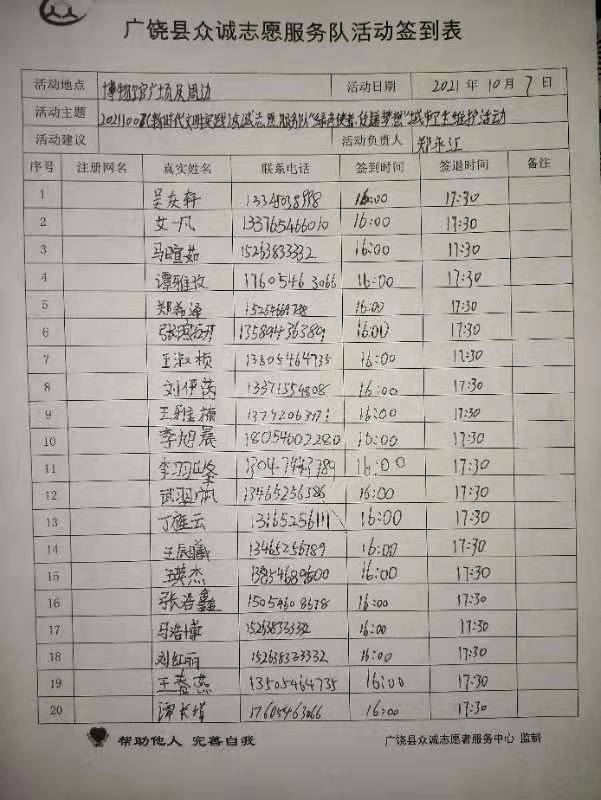 广饶县众诚志愿服务队活动签到表
活动地点 博物馆广场及周边 活动日期 2021年10月7日
活动主题 20211007(新时代文明实践)众诚志愿服务队"绿色使者,放蓝梦想"城市卫生维护活动
活动建议 活动负责人 郑永江
序号 注册网名 真实姓名 联系电话 签到时间 签退时间 备注
1 16:00 17:30
2 文一凡 133765466010 16:00 17:30
3 马暄茹 15263833332 16:00 17:30
4 谭雅孜 17605463066 16:00 17:30
5 郑希泽 16:00 17:30
6 13589436389 16:00 17:30
7 王淑桢 13805464735 16:00 17:30
8 刘伊茵 13371554808 16:00 17:30
9 16:00 17:30
10 李旭晨 18054602280 16:00 17:30
11 李羽峰 16:00 17:30
12 13465256386 16:00 17:30
13 丁雅云 13165256111 16:00 17:30
14 王辰曦 13465256789 16:00 17:30
15 王英杰 13854689600 16:00 17:30
16 张浩鑫 15054608678 16:00 17:30
17 马浩博 15263833332 16:00 17:30
18 刘红丽 15263833332 16:00 17:30
19 王春燕 13505464735 16:00 17:30
20 17605463066 16:00 17:30
帮助他人 完善自我 广饶县众诚志愿者服务中心 监制